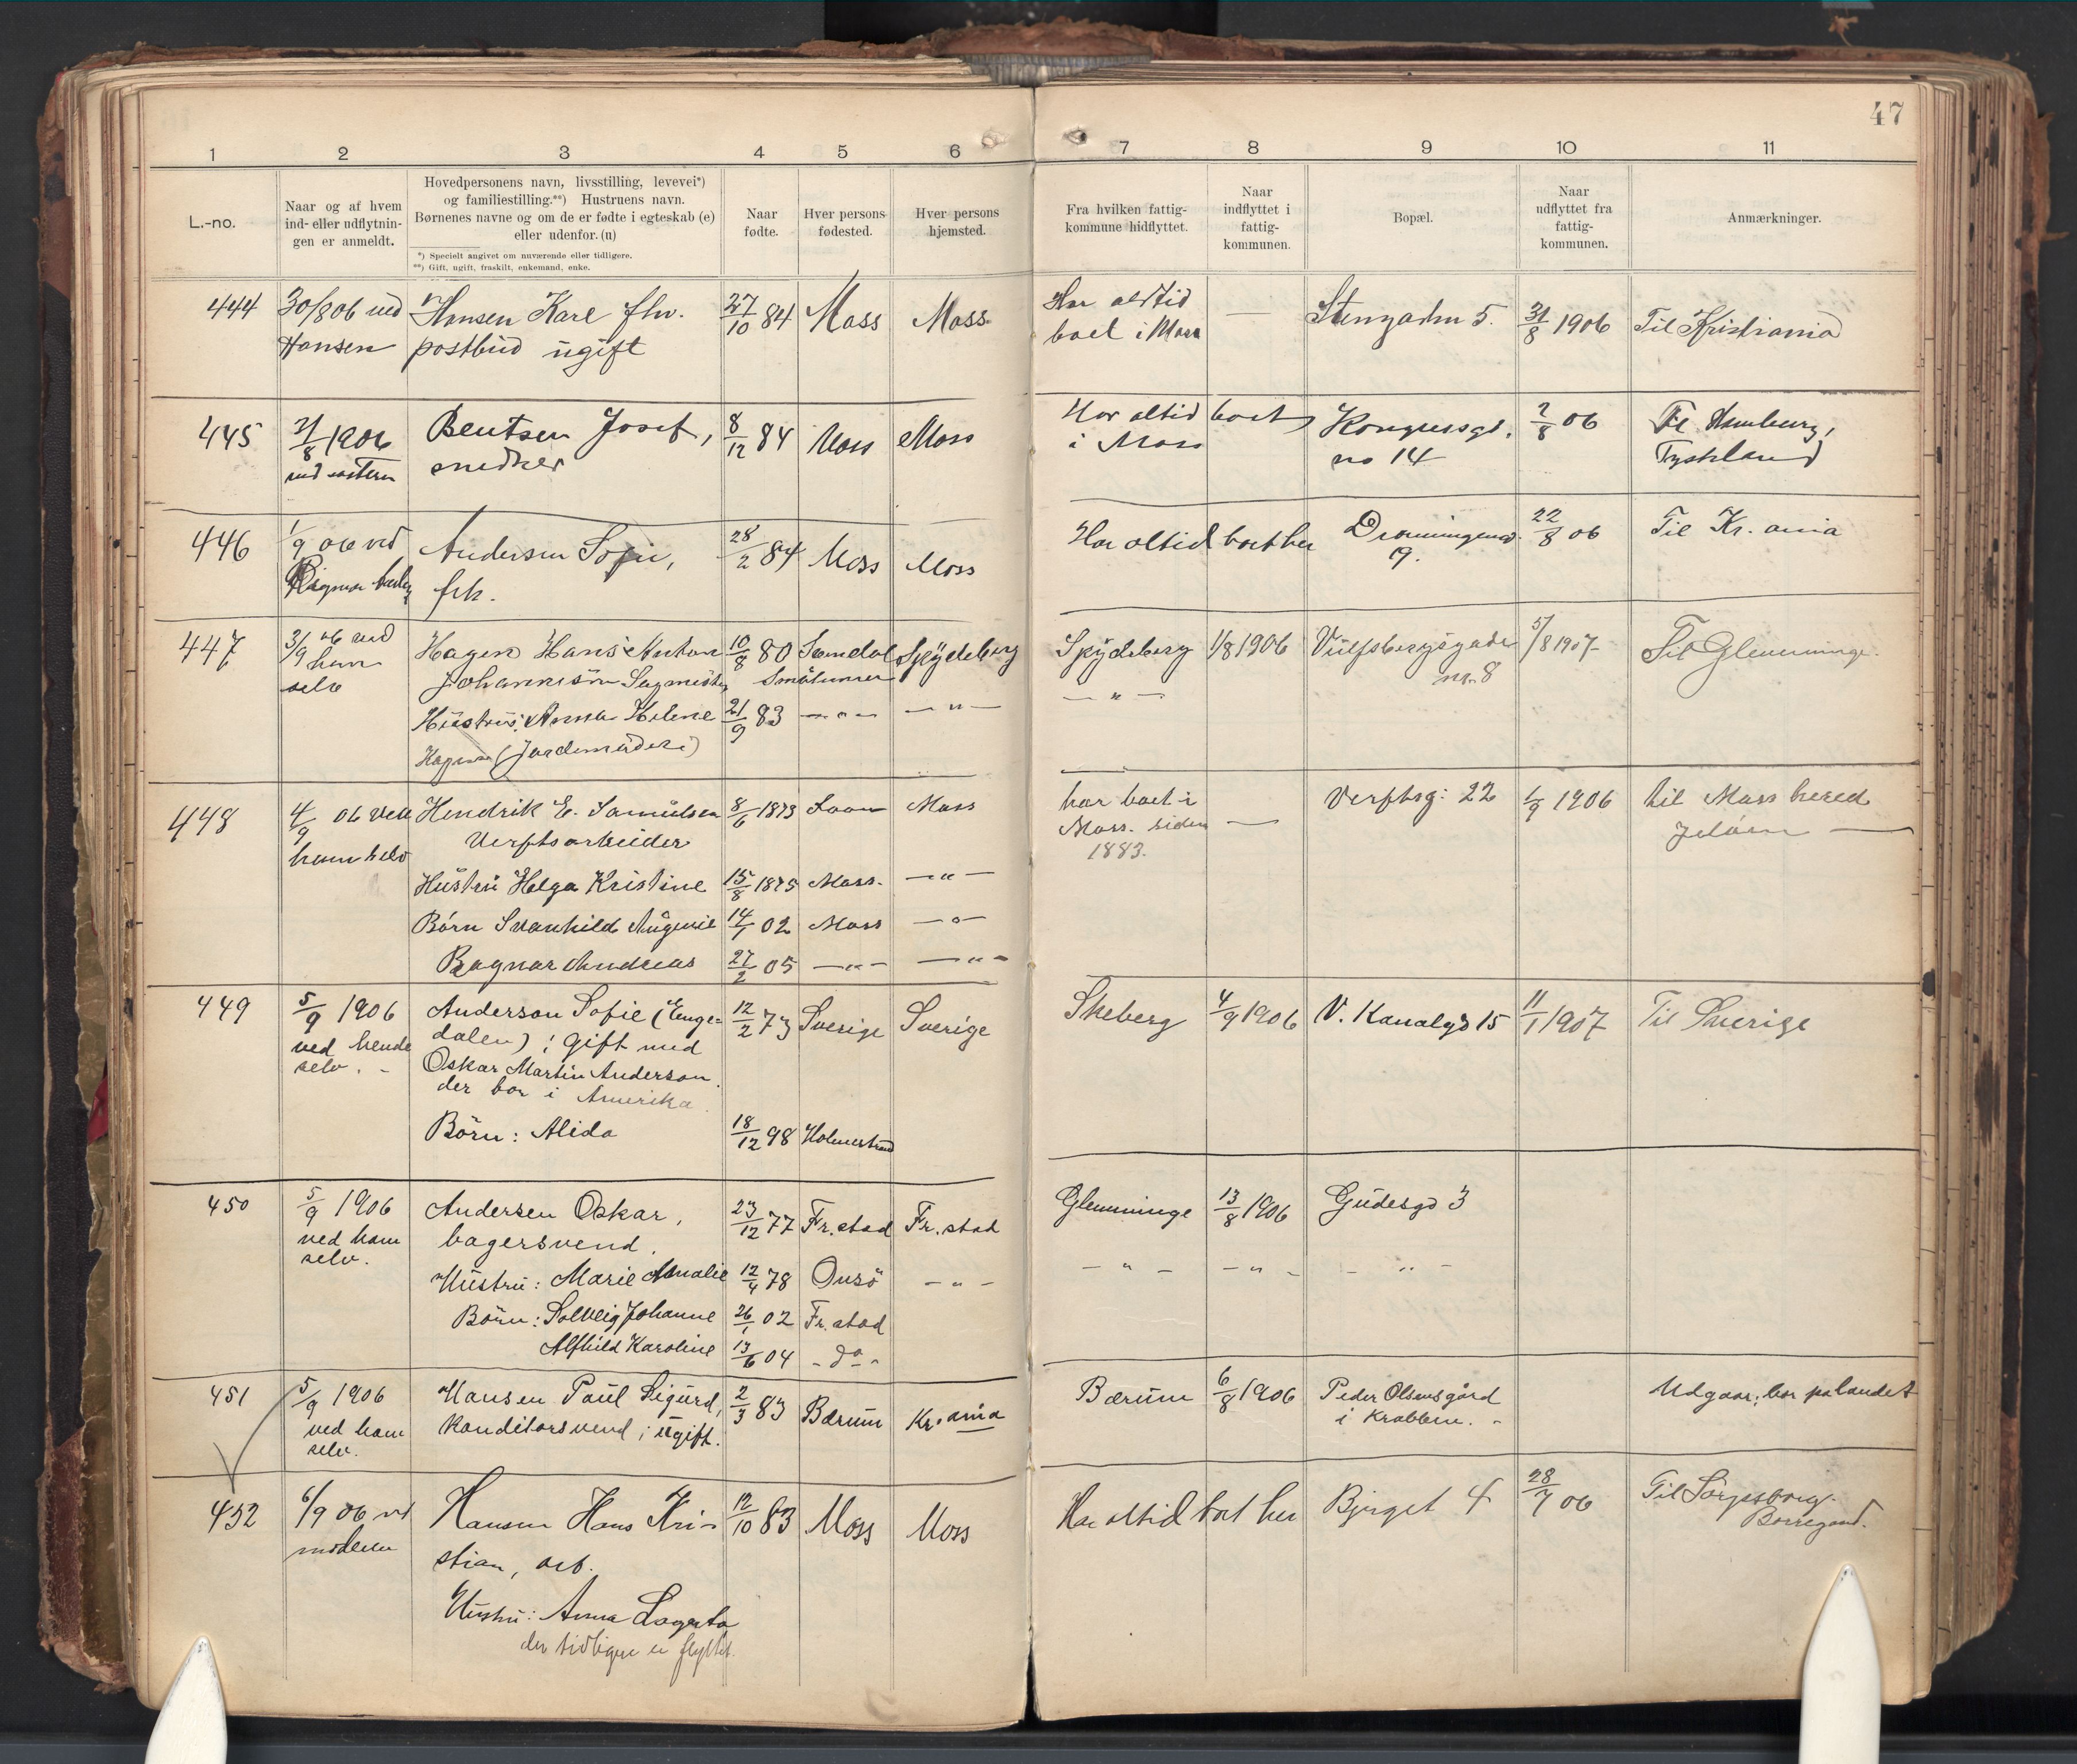 47
1 2 3 4 5 6 7 8 9 10 11
L.-no.
Naar og af hvem
ind- eller udflytnin-
gen er anmeldt.
Hovedpersonens navn, livsstilling, levevei*)
og familiestilling.**) Hustruens navn.
Børnenes navne og om de er fødte i egteskab (e)
eller udenfor. (u)
*) Specielt angivet om nuværende eller tidligere.
**) Gift, ugift, fraskilt, enkemand, enke.
Naar
fødte.
Hver persons
fødested.
Hver persons
hjemsted.
Fra hvilken fattig-
kommune hidflyttet.
Naar
indflyttet i
fattig-
kommunen.
Bopæl.
Naar
udflyttet fra
fattig-
kommunen.
Anmærkninger.
444
30/8 06 ved
Hansen
Hansen Karl fhv.
postbud ugift
27/10 84
Moss
Moss
Har altid
boet i Moss
—
Stengaden 5.
31/8 1906
Til Kristiania
445
31/8 1906
Bentsen Josef,
snedker
8/12 84
Moss
Moss
Har altid boet
i Moss
Kongensgd.
no 14
2/8 06
Til Hamburg,
Tyskland
446
1/9 06 ved
Andersen Sofie,
frk.
28/2 84
Moss
Moss
Har altid boet her
Dronningensgd.
9.
22/8 06
Til Kr. ania
447
3/9 06 ved
ham
selv
Hagen Hans Anton
Johannesen Sagmester
10/8 80
Smålenene
Spydeberg
Hustru: Anna Helene
Hagen (Jordemoder)
21/9 83
— " —
— " —
Spydeberg
— " —
1/8 1906
Vulfsbergsgade
no. 8
5/8 1907
Til Glemminge.
448
4/9 06 ved
ham selv
Hendrik E. Samuelsen
Verftsarbeider
8/6 1873
Soon
Moss
Hustru Helga Kristine
15/8 1875
Moss.
— " —
Børn Svanhild Ångerie
14/1 02
Moss
— " —
Ragnar Andreas
27/2 05
— " —
— " —
har boet i
Moss. siden
1883.
—
Verftsg: 22
1/9 1906
til Moss herred
Jeløen —
449
5/9 1906
ved hende
selv. -
Anderson Sofie (Enge=
dalen); gift med
Oskar Martin Anderson.
der bor i Amerika.
12/2 73
Sverige
Sverige
Børn: Alida
18/12 98
Holmestrand
Skeberg
4/9 1906
V. Kanalgd 15
11/1 1907
Til Sverige
450
5/9 1906
ved ham
selv.
Andersen Oskar,
bagersvend.
23/12 77
Fr.stad
Fr.stad
Hustru: Marie Amalie
12/4 78
Onsö
- " -
Børn: Solveig Johanne
26/1 02
Fr.stad
Alfhild Karoline
13/6 04
- do -
Glemminge
- " -
13/8 1906
- " -
Gudesgd 3
- " -
451
5/9 1906
ved ham
selv.
Hansen Paul Sigurd,
Konditorsvend; ugift.
2/3 83
Bærum
Kr.ania
Bærum
6/8 1906
Peder Olsensgård
i Krabben. -
Udgaar; bor pa landet
452
6/9 06 ved
moderen
Hansen Hans Kri-
stian, arb.
12/10 83
Moss
Moss
Hustru: Anna Lagerta
der tidligere er flyttet.
Har altid boet her
Bjerget 4
28/7 06
Til Sarpsborg.
Borregaard.